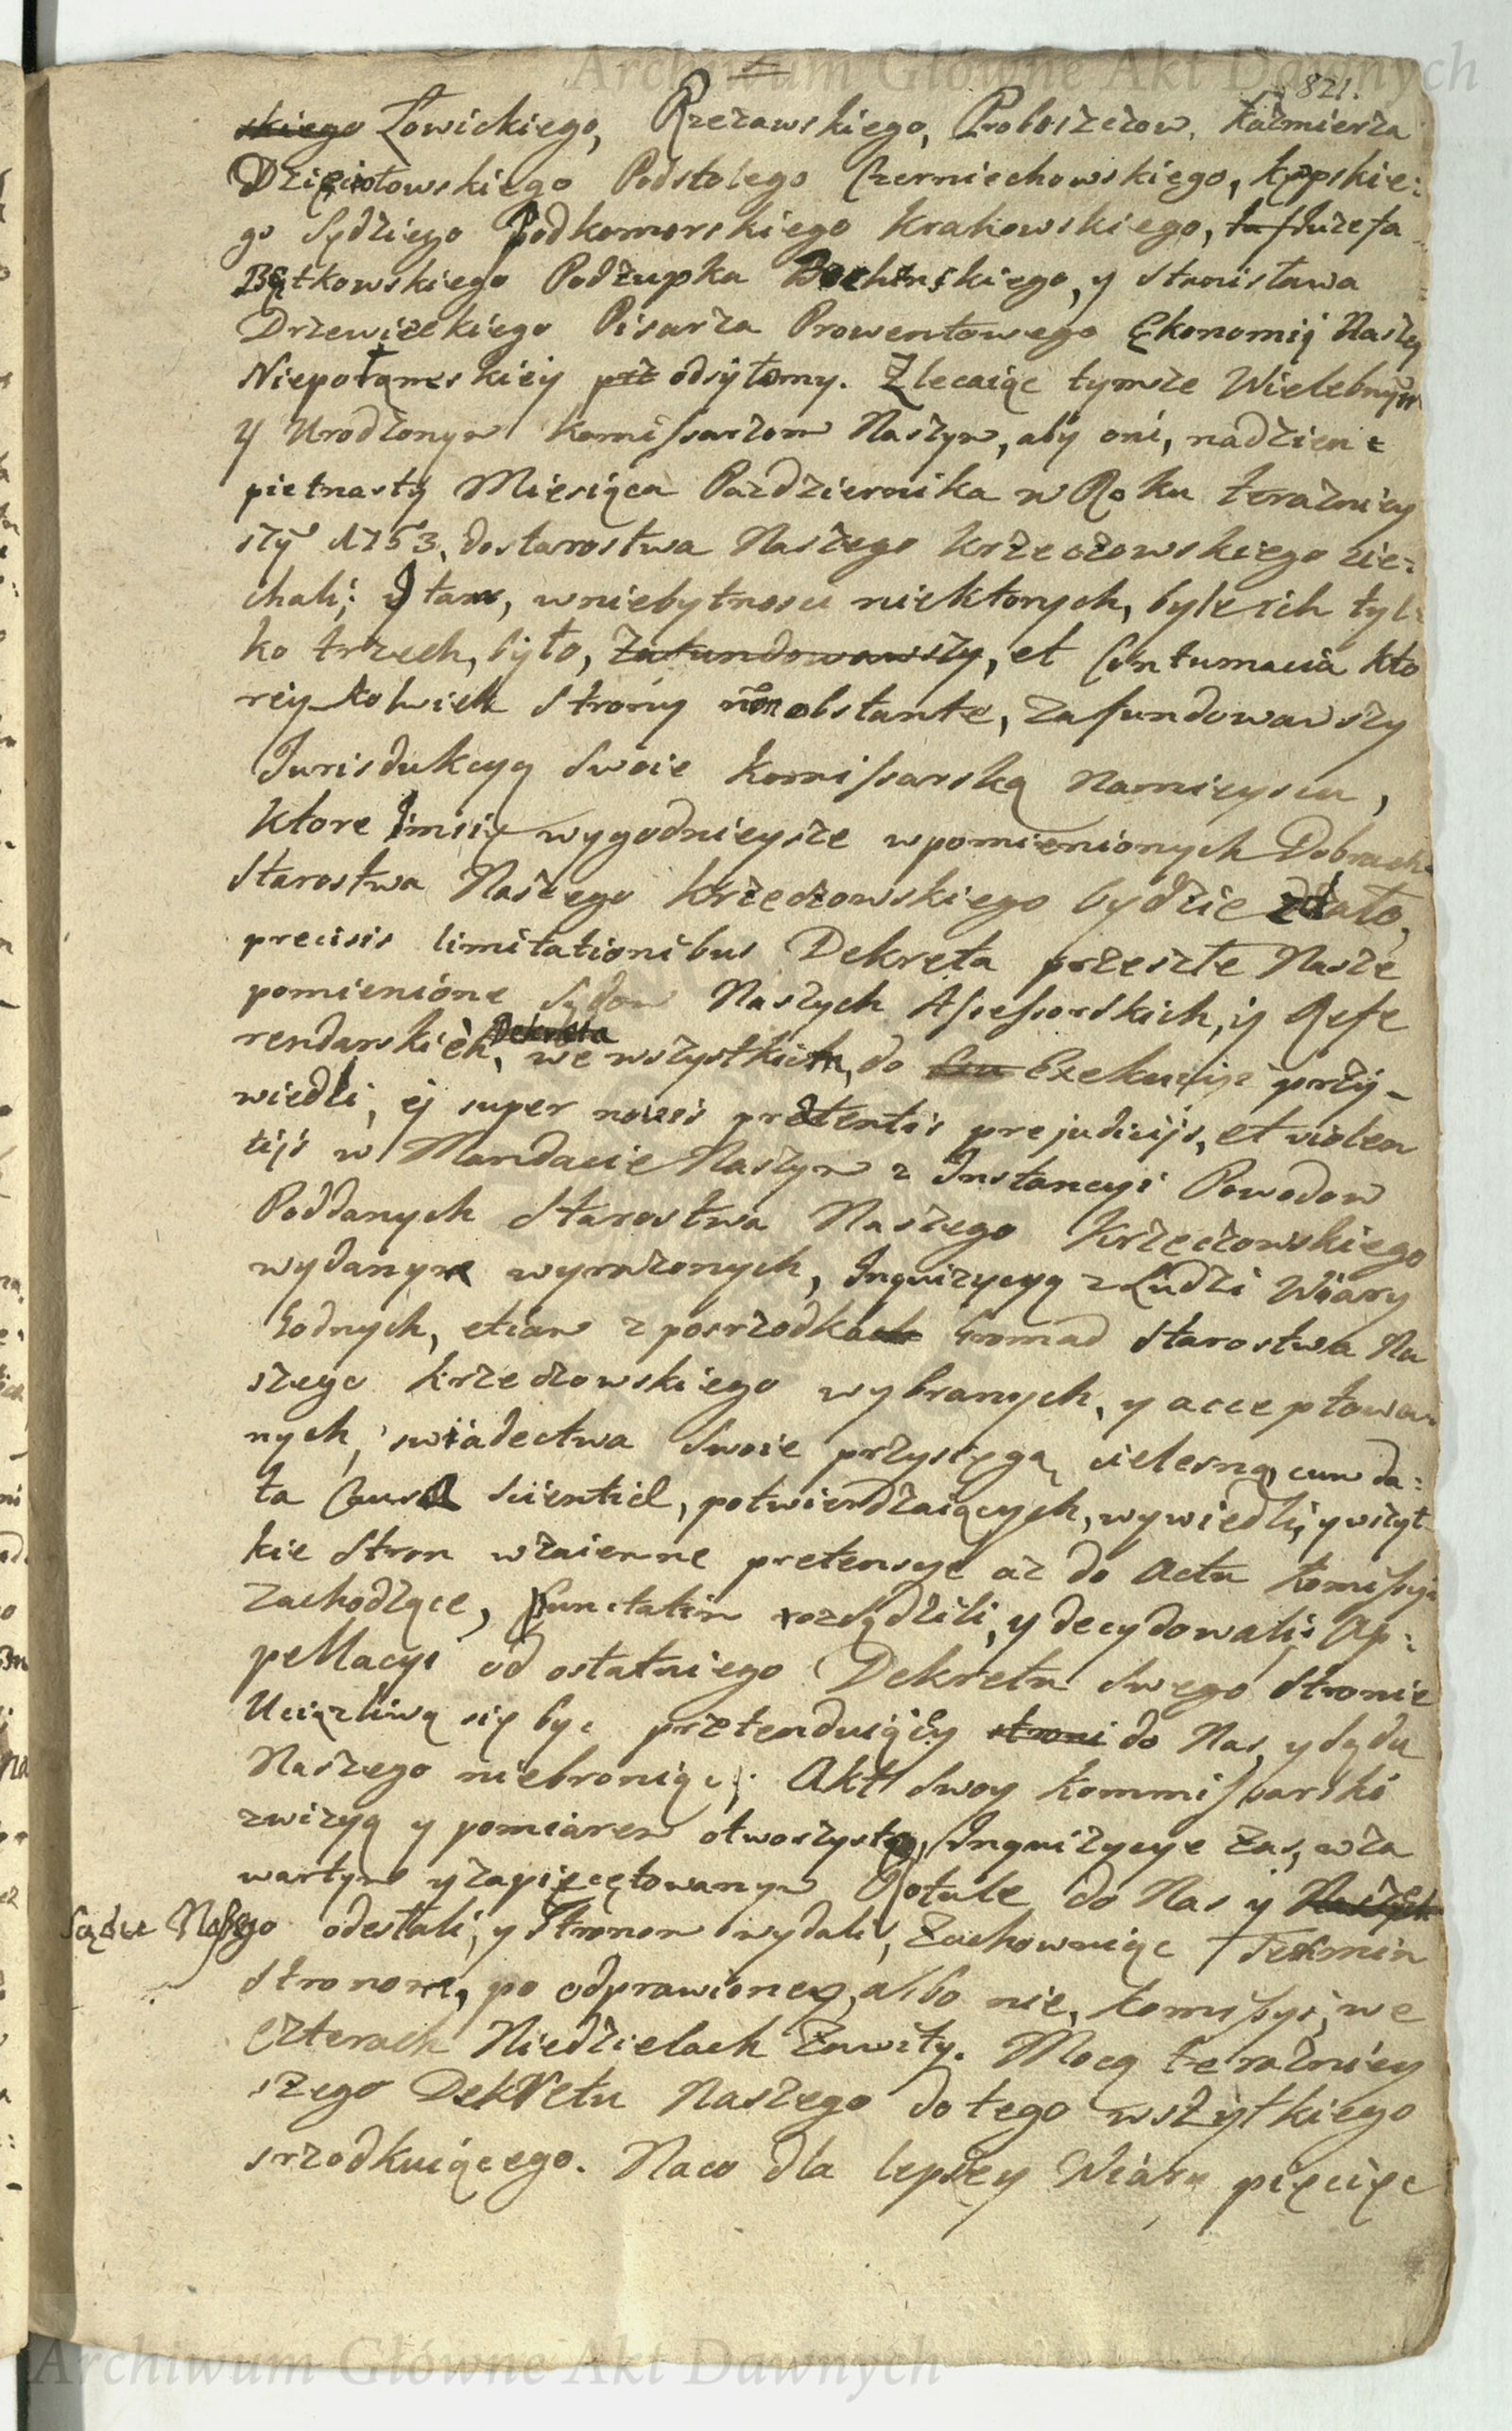 Archiwum Główne Akt Dawnych
821.
skiego Łowickiego, Rzezawskiego, Proboszczow, Kaźmierza
Dzięciołowskiego Podstolego Czerniechowskiego, Kępskie:
go Sędziego Podkomorskiego Krakowskiego, Juzefa
Bętkowskiego Podżupka Bochinskiego, y Stanisława
Drzewieckiego Pisarza Prowentowego Ekonomij Naszey
Niepołamskiey odsyłamy. Zlecaiąc tymże Wielebnym
y Urodzonym Komissarzom Naszym, aby oni, nadzien
pietnasty Miesiąca Pazdziernika w Roku terazniey
szy 1753, dostarostwa Naszego Krzeczowskiego zie:
chali; y tam, wniebytnosci niektorych, byle ich tyl:
ko trzech, było, zafundowawszy, et Contumacia kto
rey kolwiek strony non obstante, zafundowawszy
Jurisdukcyą Swoie Komissarską Namieyscu,
Ktore Jmsię wygodnieysze wpomienionych Dobrach
Starostwa Naszego Krzeczowskiego będzie zdało,
precisis limitationibus Dekreta przeszłe Nasze
pomienione Sądow Naszych Assessorskich, y Refe
Dekreta
rendarskich, we wszystkich, do Exekucyi przy-
wiedli, ej super novis prætentis prejudicijs, et violen
tijs w Mandacie Naszym z Instancyi Powodow
Poddanych Starostwa Naszego Krzeczowskiego
wydanym wyrazonych, Inquizycyą z Ludzi Wiary
Godnych, etiam z posrzodka Gromad Starostwa Na
szego Krzeczowskiego wybranych, y acceptowa
nych, swiadectwa Swoie przysięgą cielesną, cum da:
ta Causa scientiæ, potwierdzaiących, wywiedli, y wszyt
kie Stron wzaiemne pretensye az do Actu Komissyi
zachodzące, Punctatim rozsądzili, y decydowali; Ap:
pellacyi od ostatniego Dekretu Swego Stronie
Uciązliwą się byc pretenduiącey stroni do Nas, y Sądu
Naszego niebroniąc; Akt Swoy Kommissarski
zwizyą y pomiarem otworzysto, Inquizycye zas, wza
wartym y zapieczętowanym Rotule do Nas y Naszych
Sądu Naszego odesłali; y Stronom wydali, Zachowuiąc Termin
Stronom, po odprawioney, albo nie, Komissyi, we
czterach Niedzielach Zawity. Mocą terazniey
szego Dekretu Naszego do tego wszytkiego
srzodkuiącego. Naco dla lepszey Wiary pięcięc
Archiwum Główne Akt Dawnych